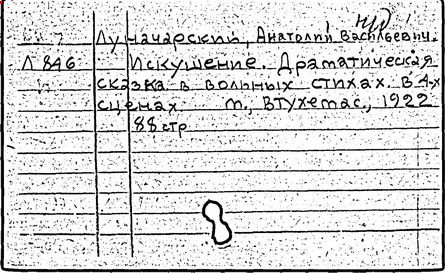 Луначарский, Анатолий Васильевич.
Л 846 Искушение. Драматическая
сказка в вольных стихах. В 4-х
сценах. М., Втухемас., 1922
88 стр